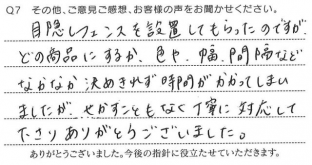 Q7 その他、ご意見ご感想、お客様の声をお聞かせください。
目隠しフェンスを設置してもらったのですが
どの商品にするか、色や、幅、間隔など
なかなか決めきれず時間がかかってしまい
ましたが、せかすこともなく丁寧に対応して
下さりありがとうございました。
ありがとうございました。今後の指針に役立たせていただきます。